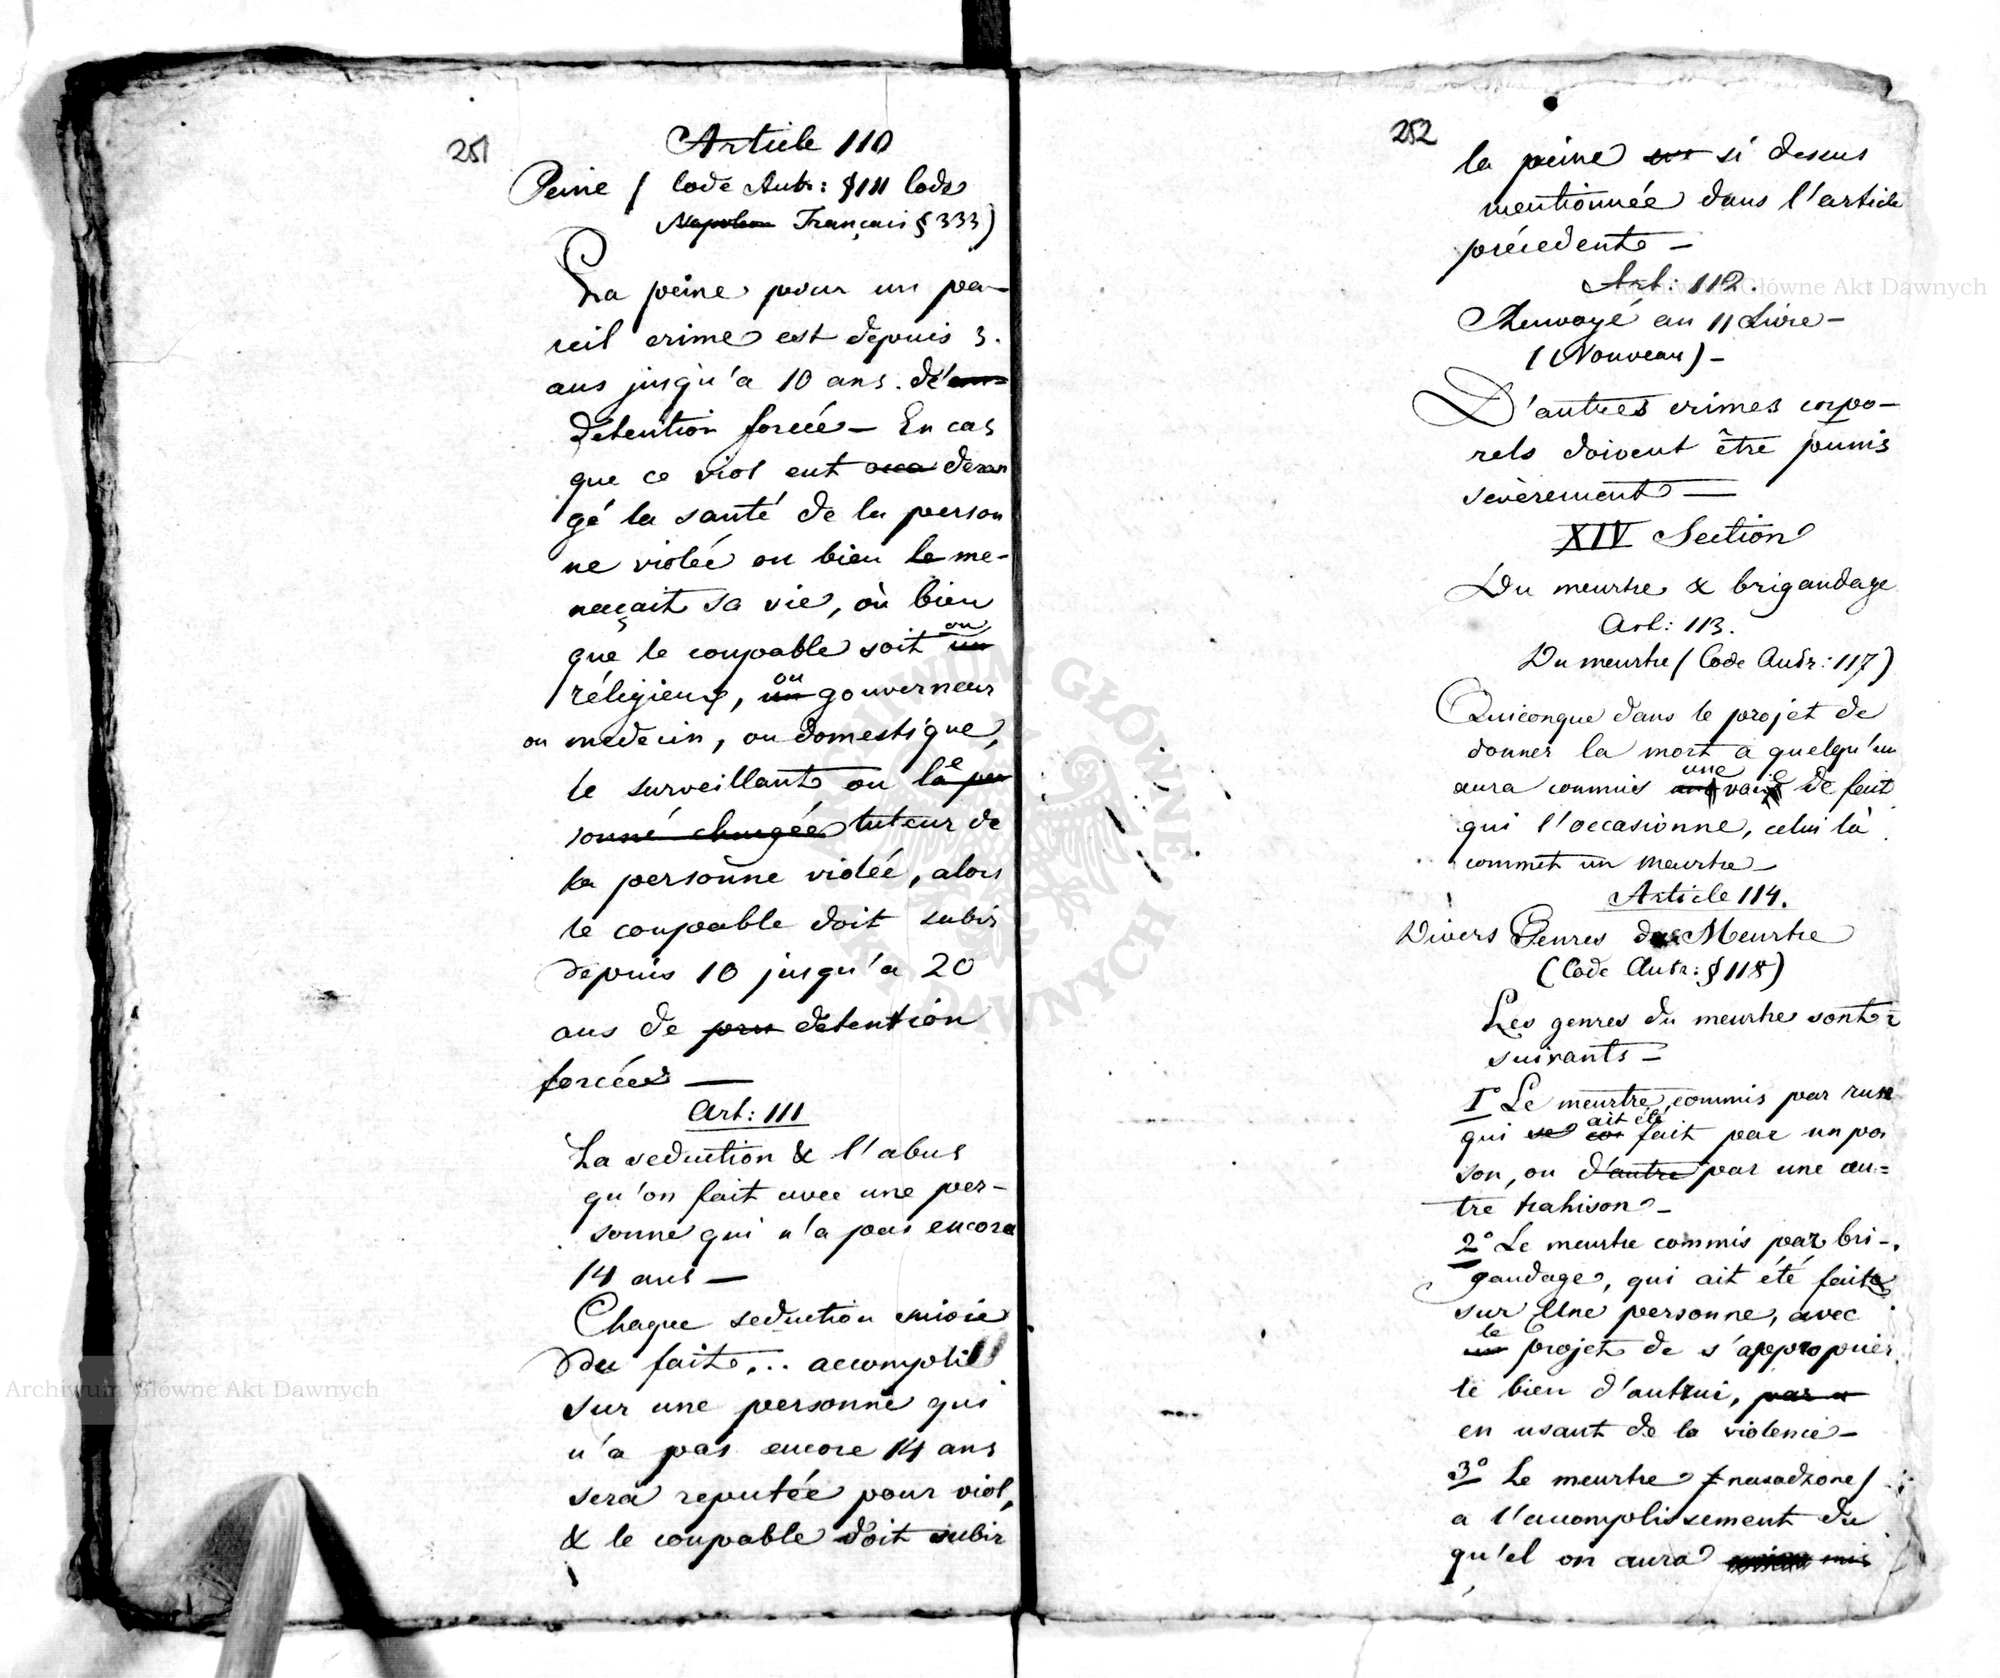 251
Article 110
Peine ( Code Autr: § 111 Code
Napoleon Français § 333)
La peine pour un pa-
reil crime est depuis 3.
ans jusqu'a 10 ans. de
détention forcée — En cas
que ce viol eut deran
gé la santé de la person
ne violée ou bien le me-
naçait sa vie, où bien
ou
que le coupable soit un
ou
réligieux, un gouverneur
ou medecin, ou domestique,
le surveillant ou le per
sonne chargée tuteur de
la personne violée, alors
le coupable doit subir
depuis 10 jusqu'a 20
ans de detention
forcée —
Art: 111
La seduction & l'abus
qu'on fait avec une per-
sonne qui n'a pas encore
14 ans —
Chaque seduction suivie
du fait... accompli
sur une personne qui
n'a pas encore 14 ans
sera reputée pour viol,
& le coupable doit subir
252
la peine si dessus
mentionnée dans l'article
précedente —
Art: 112.
Renvoyé au II Livre —
(Nouveau) —
D'autres crimes corpo-
rels doivent être punis
sevèrement —
XIV Section
Du meurtre & brigandage
Art: 113.
Du meurtre ( Code Autr: 117)
Quiconque dans le projet de
donner la mort a quelqu'un
une
aura commis voie de fait
qui l'occasionne, celui là
commet un meurtre —
Article 114.
Divers Genres de Meurtre
(Code Autr: § 118)
Les genres du meurtre sont
suivants —
1° Le meurtre commis par ruse
ait été
qui fait par un poi
son, ou d'autre par une au=
tre trahison —
2° Le meurtre commis par bri-
gandage, qui ait été fait
sur Une personne, avec
le
un projet de s'approprier
le bien d'autrui, par
en usant de la violence —
3° Le meurtre (nasadzone)
a l'accomplissement du
qu'el on aura mis
Archiwum Główne Akt Dawnych
Archiwum Główne Akt Dawnych
ARCHIWUM GŁÓWNE AKT DAWNYCH